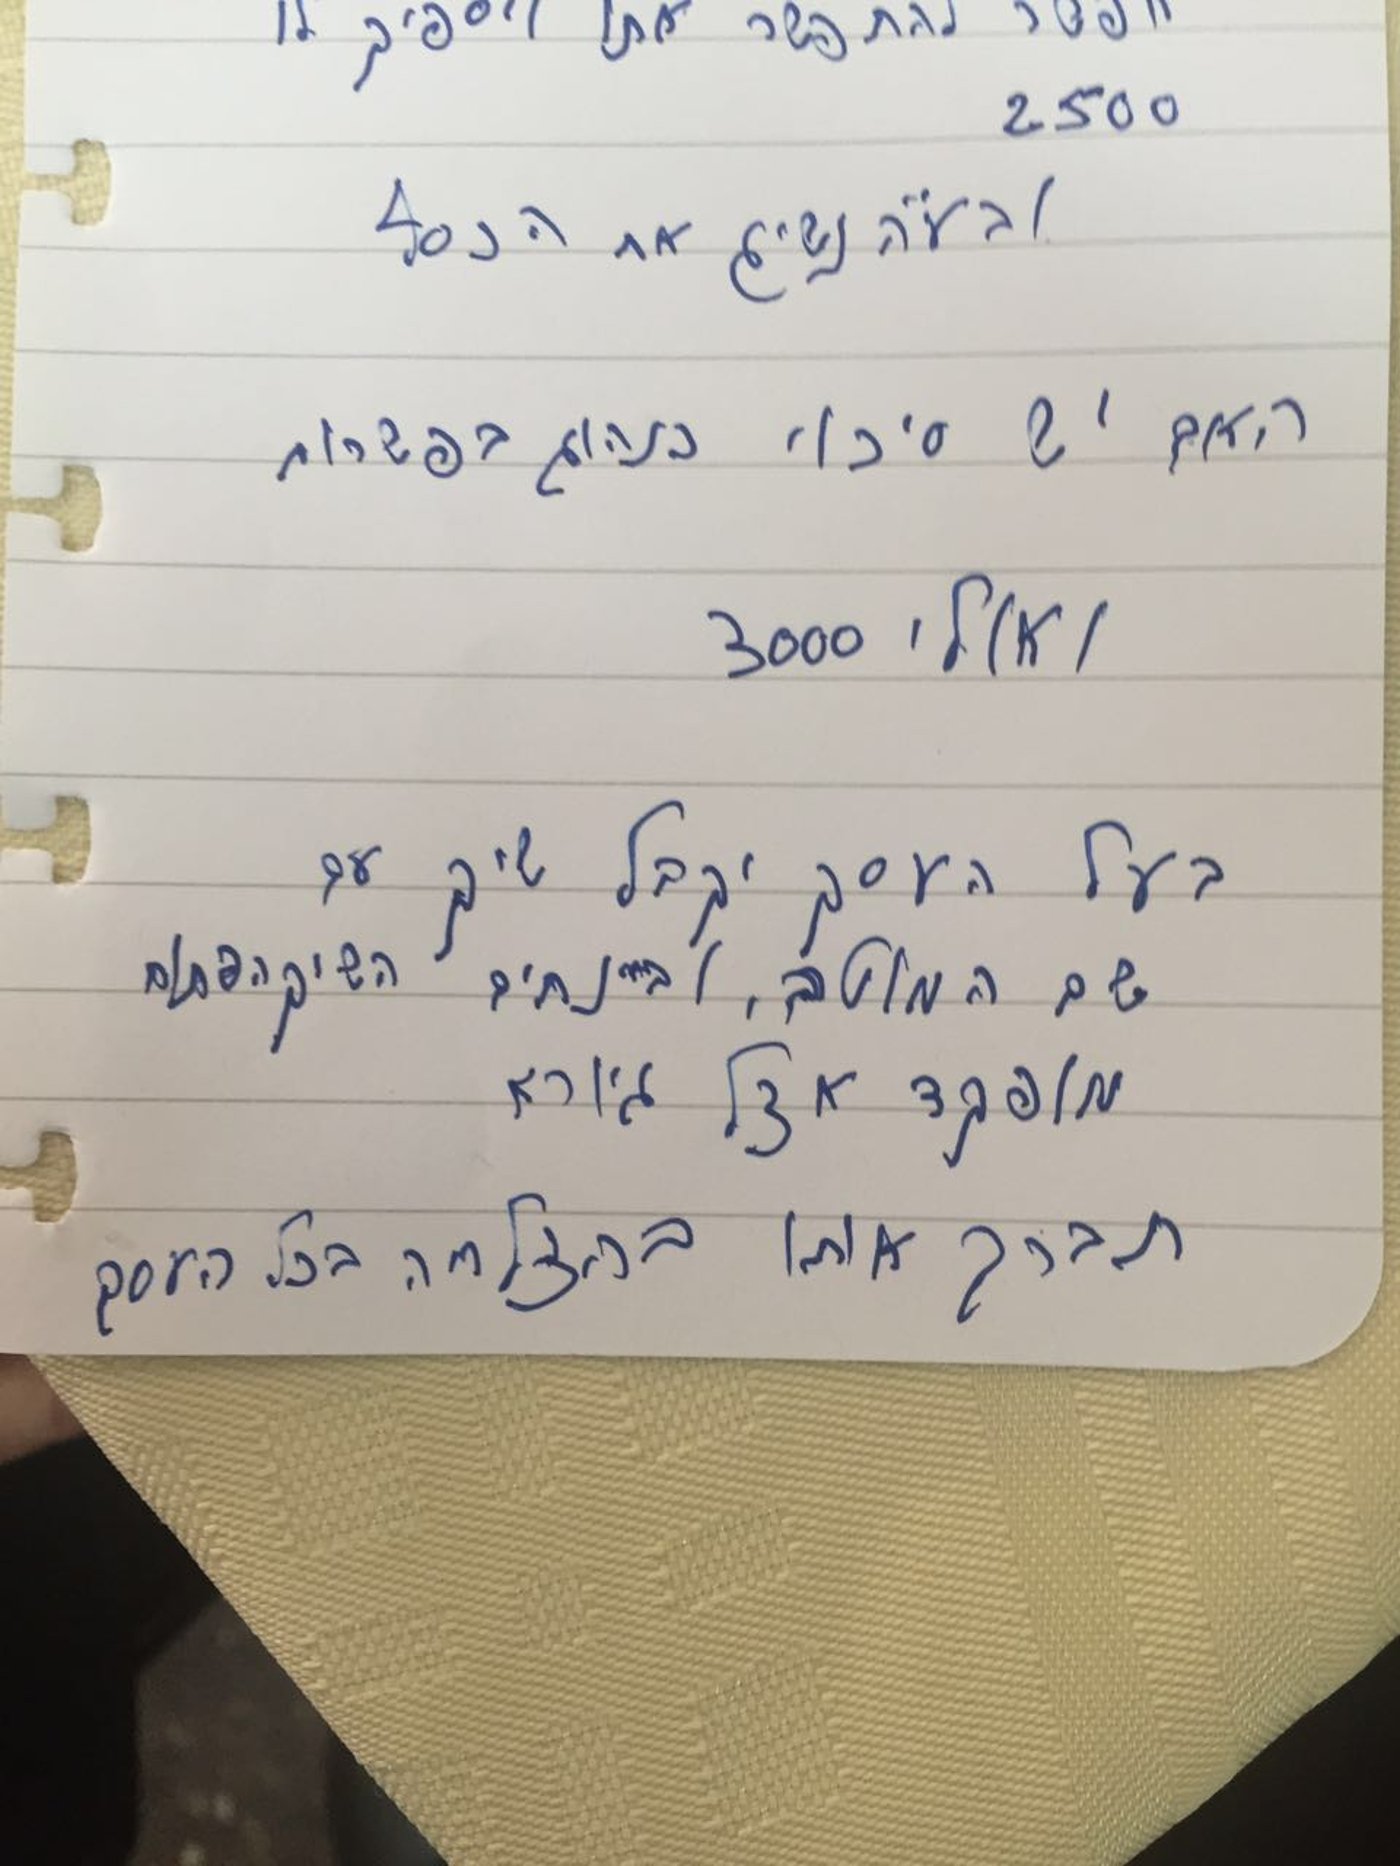 אפשר להתפשר אתו ויספיק לו
2500
ובע"ה נשיג את הכסף
האם יש סיכוי כנהוג בפשרות
ואולי 3000
בעל העסק יקבל שיק עם
שם המוטב, ובינתים השיק הפתוח
מופקד אצל גיורא
תברך אותו בהצלחה בכל העסק